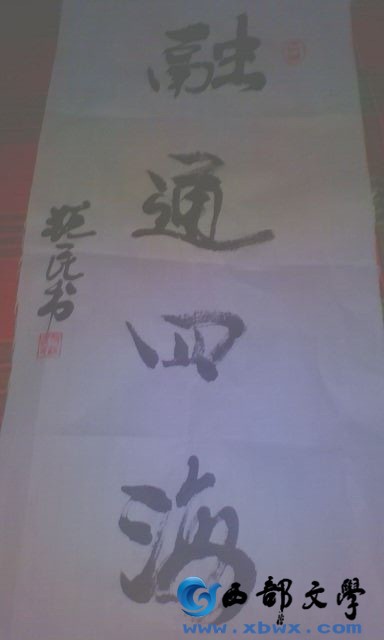 融通四海
民书
西部文學
www.xbwx.com